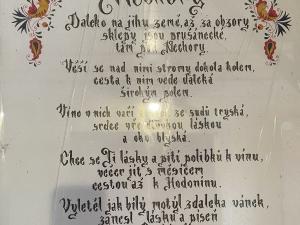 Nechory
Daleko na jihu země, až za obzory
sklepy jsou prušánecké,
tam jsou Nechory.
Věší se nad nimi stromy dokola kolem,
cesta k nim vede daleká
širokým polem.
Víno v nich vaří se sudů tryská,
srdce vře láskou
a oko blýská.
Chce se Ti lásky a pití polibků k vínu,
večer jít s měsícem
cestou až k Hodonínu.
Vyletěl jak bílý motýl zdaleka vánek,
zanesl lásku a píseň